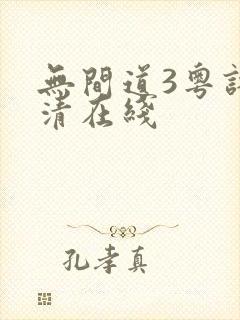 無間道3粵
清在綫
孔孝真